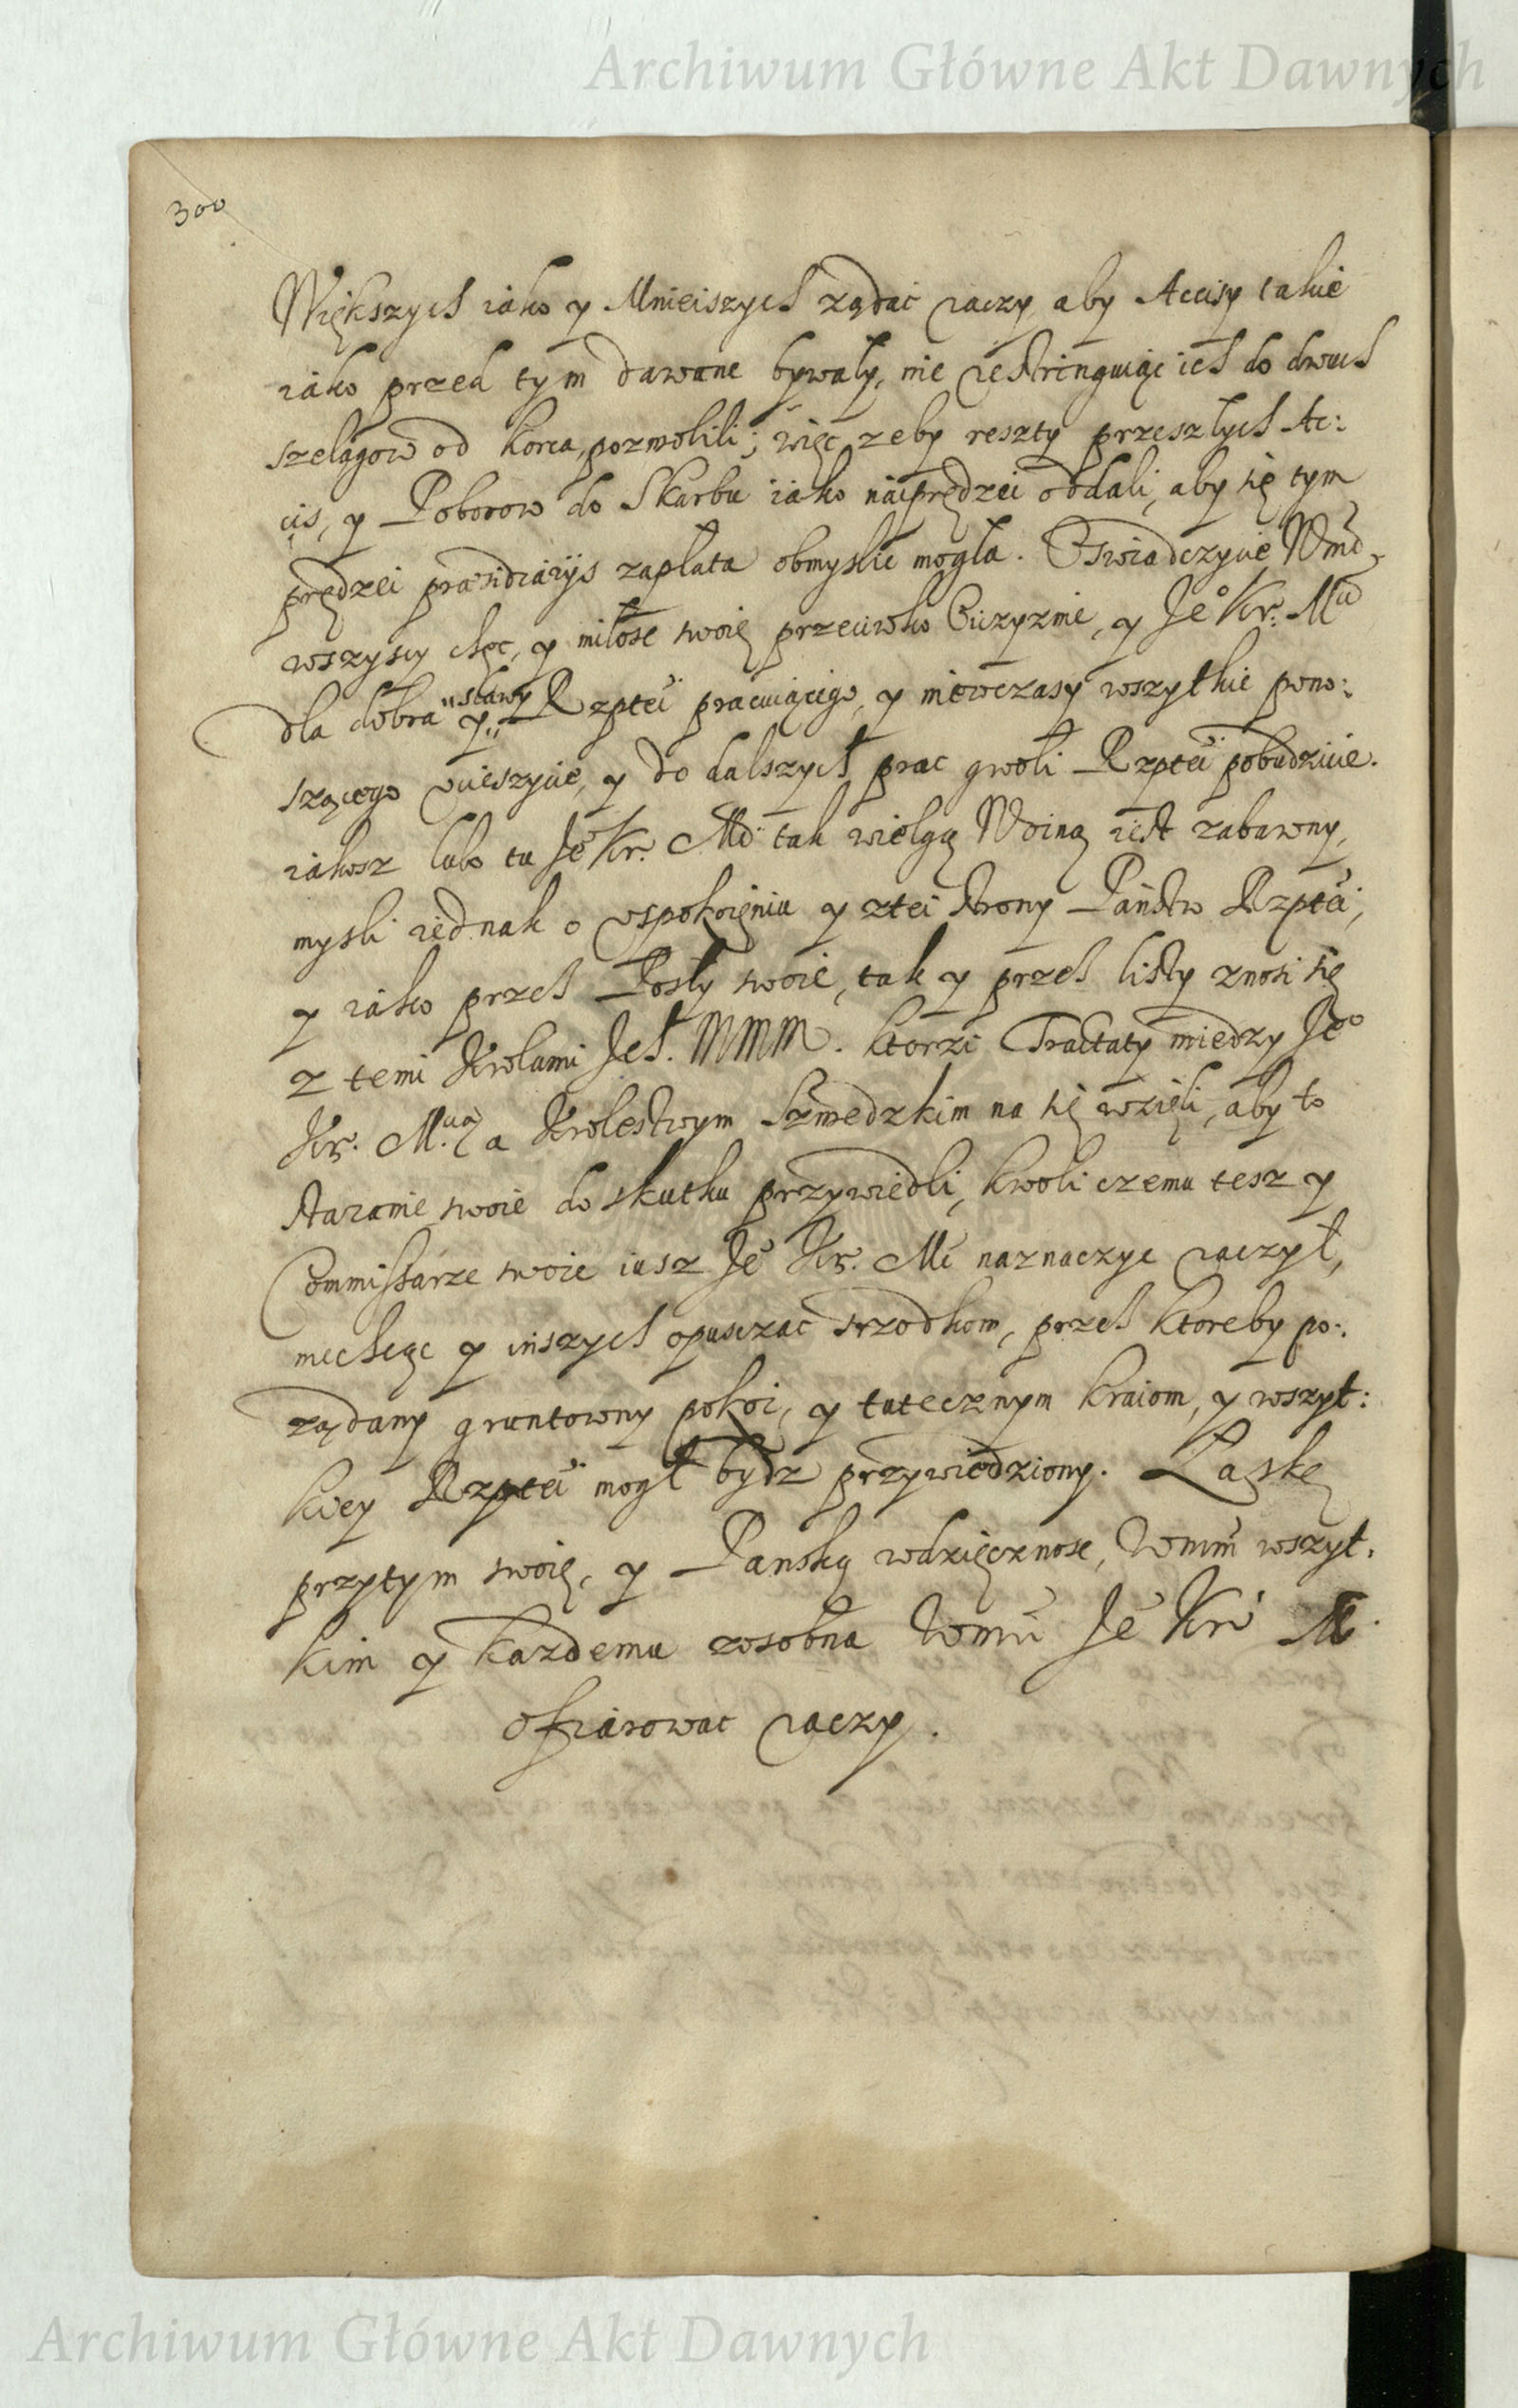 Archiwum Główne Akt Dawnych
300
Większych iako y Mnieiszych rządać raczy, aby Accisy takie
iako przed tym dawane bywały, nie restringuiąc ich do dwuch
szelągow od korca, pozwolili; więc zeby reszty przeszłych Ac:
cis, y Poborow do Skarbu iako naiprędzei oddali, aby się tym
prędzei præsidiarijs zapłata obmyslic mogła. Oswiadczycie Wmć
wszyscy chęc, y miłosc swoię przeciwko Oiczyznie, y Jeº Kr: Mci
dla dobra y sławy Rzptei pracuiącego, y niewczasy wszytkie pono:
szącego ucieszycie, y do dalszych prac gwoli Rzptei pobudzicie.
iakosz lubo tu Je Kr. Mć tak wielgą Woiną iest zabawny,
mysli iednak o uspokoięniu y ztei strony Państw Rzptei,
y iako przeh Posły swoie, tak y przeh listy znosi się
z temi Krolami Jch. MMM. ktorzi Tractaty miedzy Jeº
Kr. Mcią a Krolestwym Szwedzkim na się wzięli, aby to
staranie swoie do skutku przywiedli, kwoli czemu tesz y
Commissarze swoie iusz Je Kr. Mć naznaczyc raczył,
niechcąc y inszych opusczać srzodkow, przeh ktoreby po:
ządany gruntowny pokoi, y tutecznym kraiom, y wszyt:
kiey Rzptei mogł bydz przywiedziony. Łaskę
przytym swoię, y Panską wdzięcznosc, Wmm wszyt:
kim y kazdemu zosobna Wmu Je Kr M.
ofiarowac raczy.
Archiwum Główne Akt Dawnych